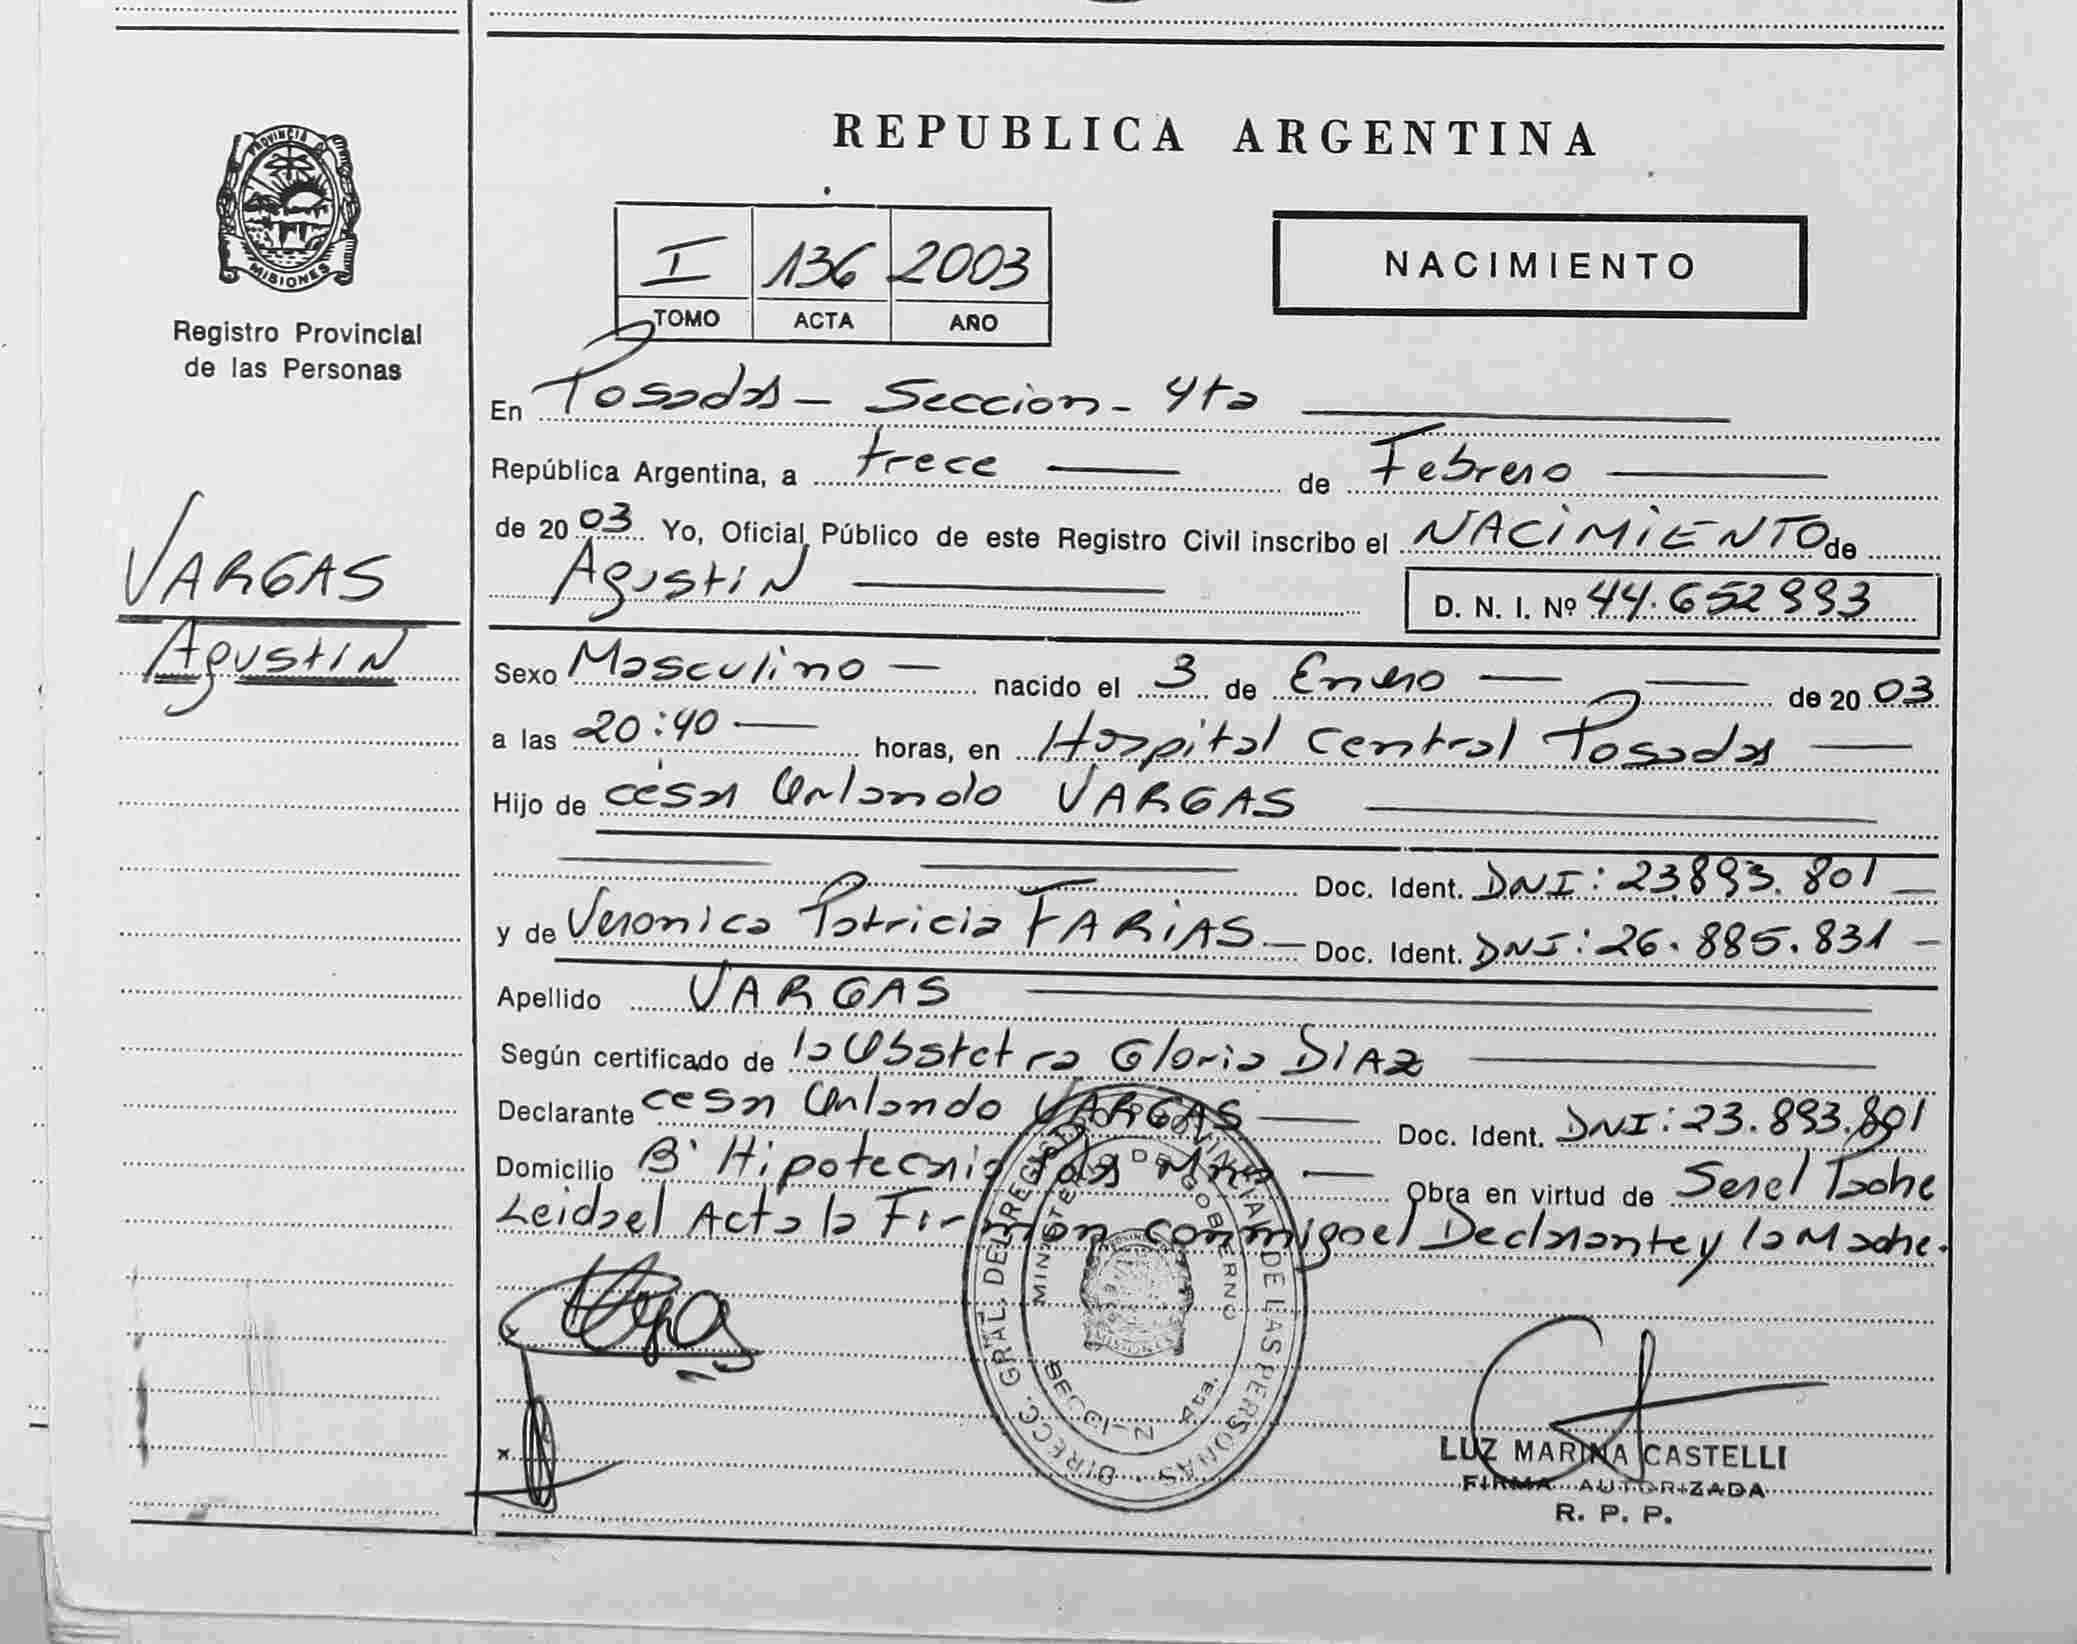 REPUBLICA ARGENTINA
PROVINCIA DE
MISIONES
Registro Provincial
de las Personas
I 136 2003
TOMO ACTA AÑO
NACIMIENTO
VARGAS
Agustin
En Posadas - Seccion - 4ta
República Argentina, a trece de Febrero
de 2003. Yo, Oficial Público de este Registro Civil inscribo el NACIMIENTO de
Agustin D. N. I. Nº 44.652993
Sexo Masculino nacido el 3 de Enero de 2003
a las 20:40 horas, en Hospital Central Posadas
Hijo de cesar Orlando VARGAS
Doc. Ident. DNI: 23.893.801
y de Veronica Patricia FARIAS Doc. Ident. DNI: 26.885.831
Apellido VARGAS
Según certificado de la Obstetra Gloria DIAZ
Declarante cesar Orlando VARGAS Doc. Ident. DNI: 23.893.801
Domicilio B' Hipotecario Pdas Mnes Obra en virtud de Ser el Padre
Leida el Acta la Firman conmigo el Declarante y la Madre.
DIRECC. GRAL. DEL REGISTRO PROVINCIAL DE LAS PERSONAS
MINISTERIO DE GOBIERNO
SECCION 4ta.
LUZ MARINA CASTELLI
FIRMA AUTORIZADA
R. P. P.